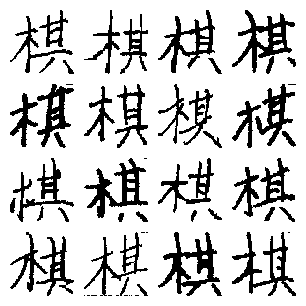 棋棋棋棋
棋棋棋棋
棋棋棋棋
棋棋棋棋